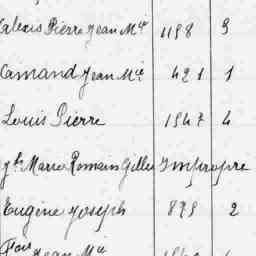 Pierre Jean Mie 1198 9
Camand Jean Mie 421 1
Louis Pierre 1547 4
Marie Romain Gilles Impropre
Eugène Joseph 899 2
Jean Mie